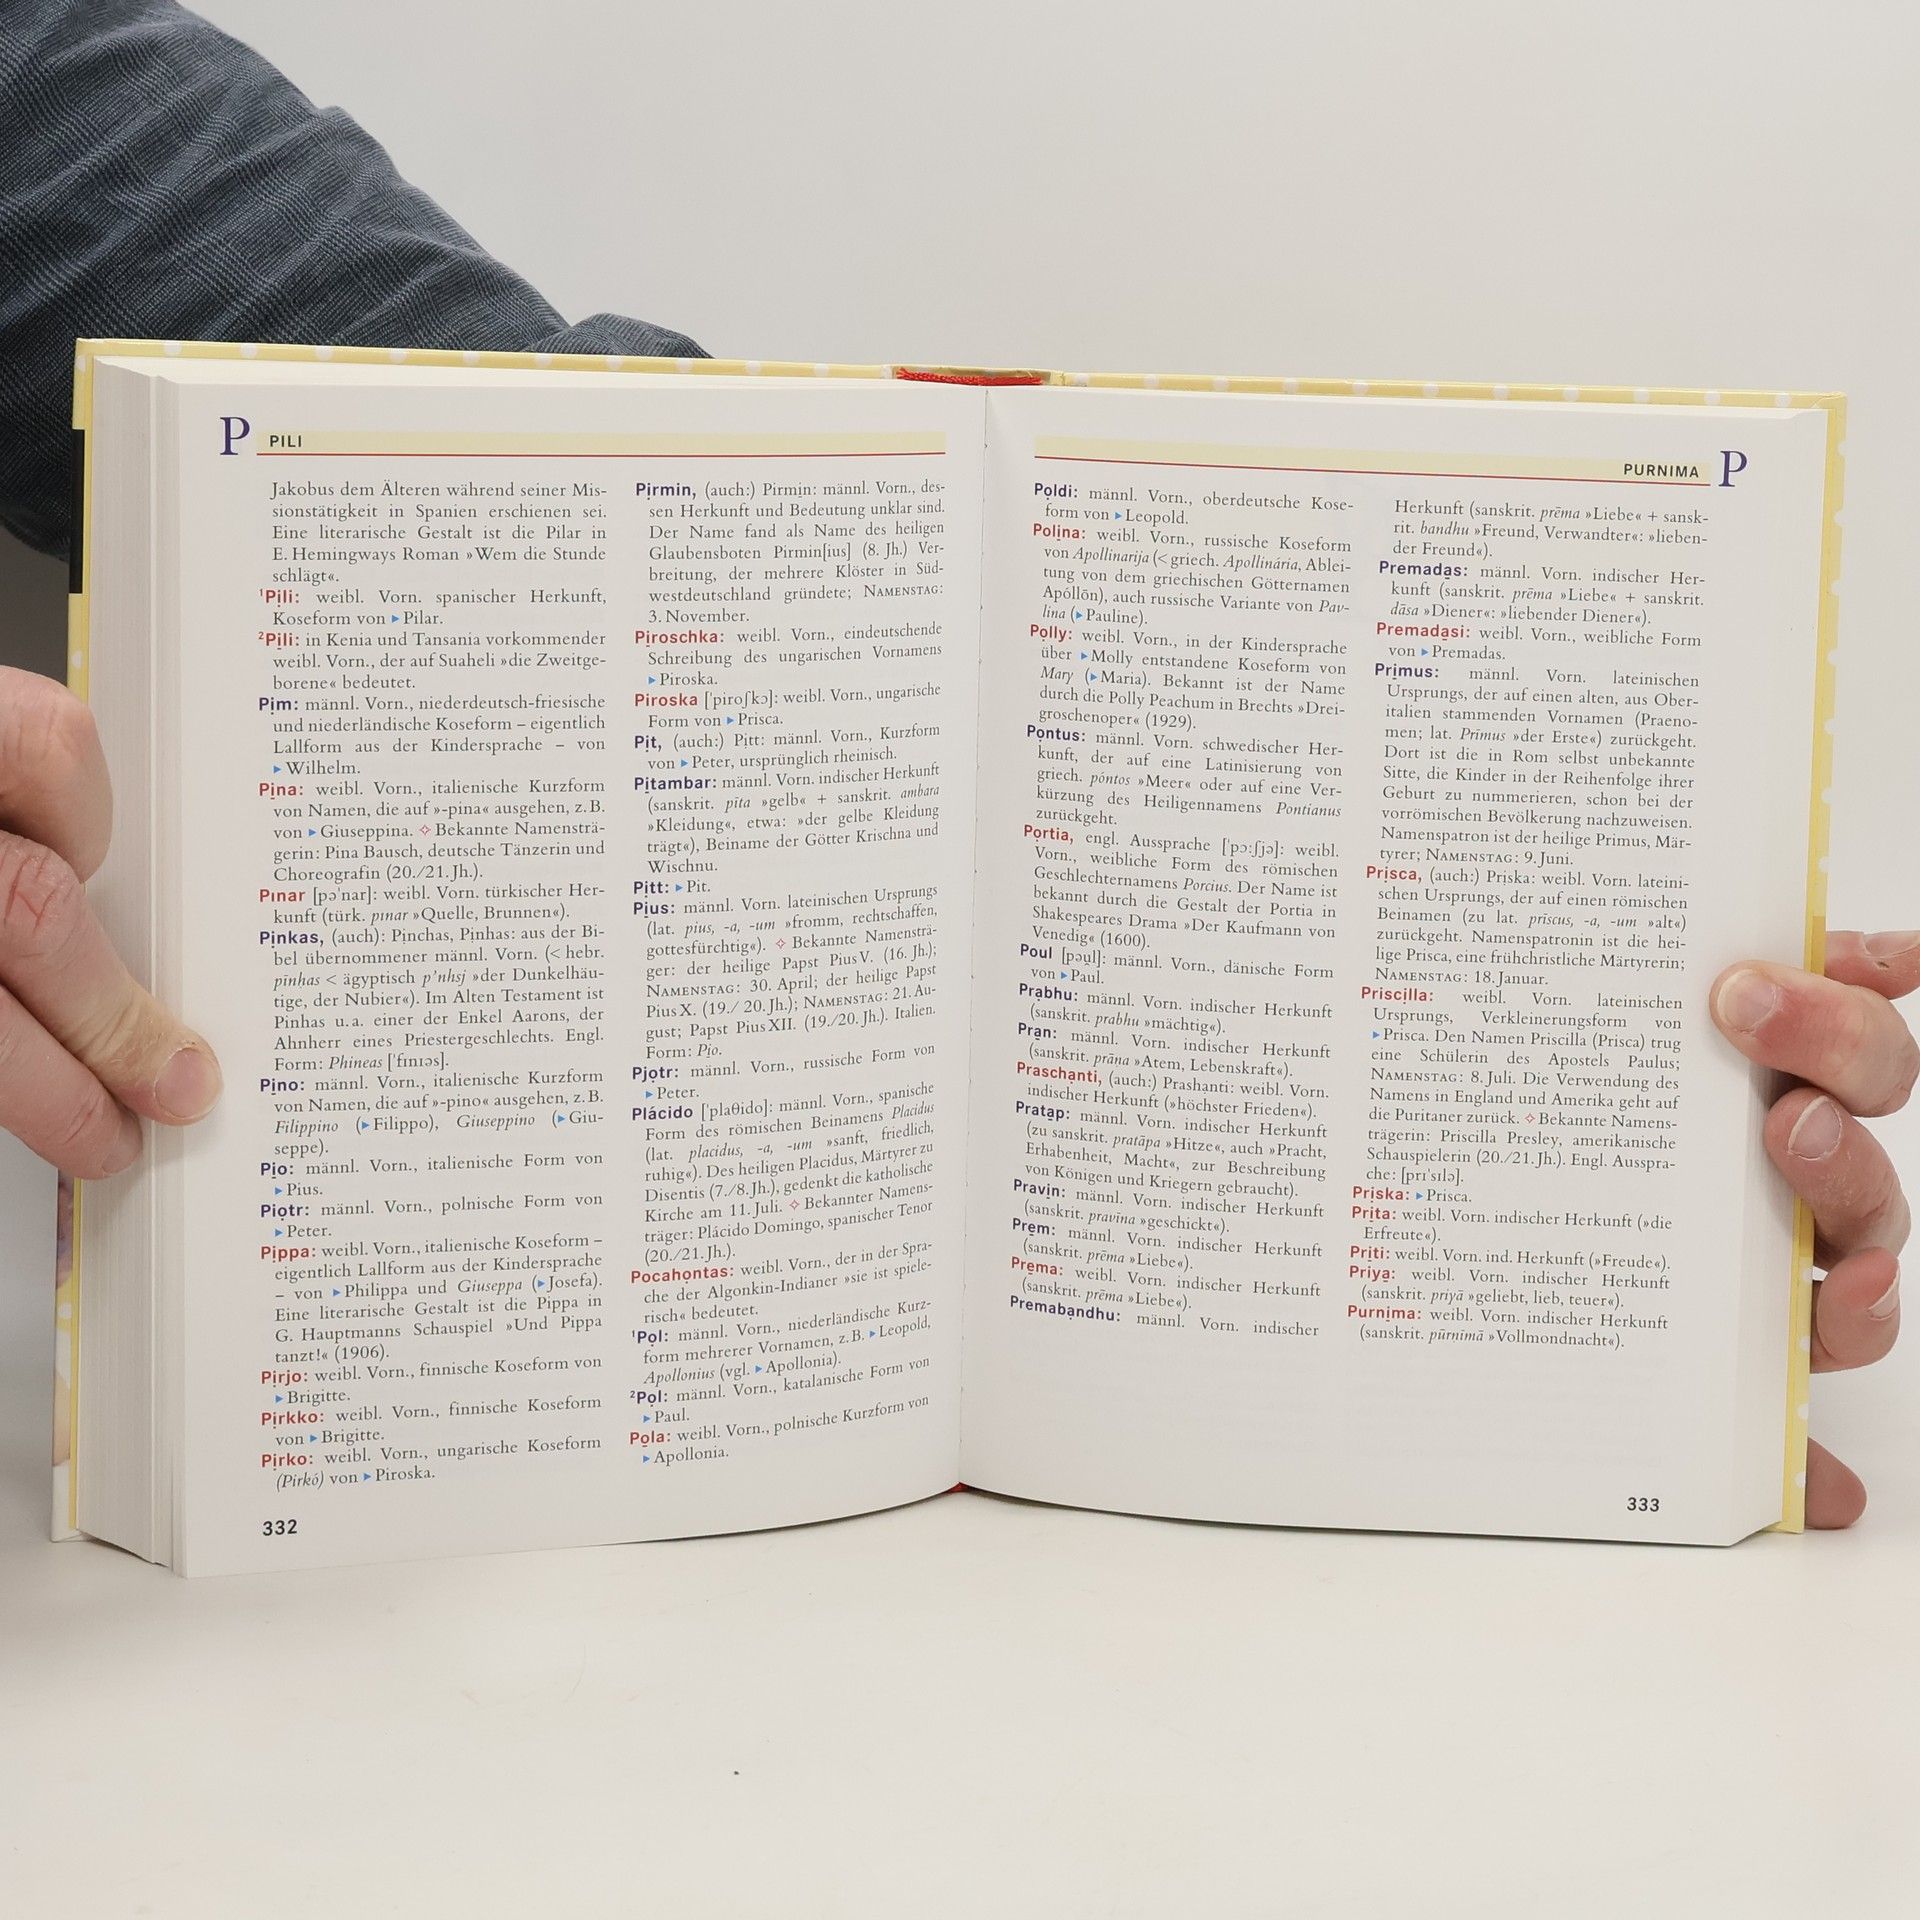 P PILI
Jakobus dem Älteren während seiner Mis-
sionstätigkeit in Spanien erschienen sei.
Eine literarische Gestalt ist die Pilar in
E. Hemingways Roman »Wem die Stunde
schlägt«.
¹Pili: weibl. Vorn. spanischer Herkunft,
Koseform von ▸ Pilar.
²Pili: in Kenia und Tansania vorkommender
weibl. Vorn., der auf Suaheli »die Zweitge-
borene« bedeutet.
Pim: männl. Vorn., niederdeutsch-friesische
und niederländische Koseform – eigentlich
Lallform aus der Kindersprache – von
▸ Wilhelm.
Pina: weibl. Vorn., italienische Kurzform
von Namen, die auf »-pina« ausgehen, z. B.
von ▸ Giuseppina. ✧ Bekannte Namensträ-
gerin: Pina Bausch, deutsche Tänzerin und
Choreografin (20./21. Jh.).
Pınar [pə'nar]: weibl. Vorn. türkischer Her-
kunft (türk. pınar »Quelle, Brunnen«).
Pinkas, (auch): Pinchas, Pinhas: aus der Bi-
bel übernommener männl. Vorn. (< hebr.
pînḥas < ägyptisch p'nhsj »der Dunkelhäu-
tige, der Nubier«). Im Alten Testament ist
Pinhas u. a. einer der Enkel Aarons, der
Ahnherr eines Priestergeschlechts. Engl.
Form: Phineas ['fɪnɪəs].
Pino: männl. Vorn., italienische Kurzform
von Namen, die auf »-pino« ausgehen, z. B.
Filippino (▸ Filippo), Giuseppino (▸ Giu-
seppe).
Pio: männl. Vorn., italienische Form von
▸ Pius.
Piotr: männl. Vorn., polnische Form von
▸ Peter.
Pippa: weibl. Vorn., italienische Koseform –
eigentlich Lallform aus der Kindersprache
– von ▸ Philippa und Giuseppa (▸ Josefa).
Eine literarische Gestalt ist die Pippa in
G. Hauptmanns Schauspiel »Und Pippa
tanzt!« (1906).
Pirjo: weibl. Vorn., finnische Koseform von
▸ Brigitte.
Pirkko: weibl. Vorn., finnische Koseform
von ▸ Brigitte.
Pirko: weibl. Vorn., ungarische Koseform
(Pirkó) von ▸ Piroska.
332
Pirmin, (auch:) Pirmin: männl. Vorn., des-
sen Herkunft und Bedeutung unklar sind.
Der Name fand als Name des heiligen
Glaubensboten Pirmin[ius] (8. Jh.) Ver-
breitung, der mehrere Klöster in Süd-
westdeutschland gründete; NAMENSTAG:
3. November.
Piroschka: weibl. Vorn., eindeutschende
Schreibung des ungarischen Vornamens
▸ Piroska.
Piroska ['piroʃkɔ]: weibl. Vorn., ungarische
Form von ▸ Prisca.
Pit, (auch:) Pitt: männl. Vorn., Kurzform
von ▸ Peter, ursprünglich rheinisch.
Pitambar: männl. Vorn. indischer Herkunft
(sanskrit. pīta »gelb« + sanskrit. ambara
»Kleidung«, etwa: »der gelbe Kleidung
trägt«), Beiname der Götter Krischna und
Wischnu.
Pitt: ▸ Pit.
Pius: männl. Vorn. lateinischen Ursprungs
(lat. pius, -a, -um »fromm, rechtschaffen,
gottesfürchtig«). ✧ Bekannte Namensträ-
ger: der heilige Papst Pius V. (16. Jh.);
NAMENSTAG: 30. April; der heilige Papst
Pius X. (19./ 20. Jh.); NAMENSTAG: 21. Au-
gust; Papst Pius XII. (19./20. Jh.). Italien.
Form: Pio.
Pjotr: männl. Vorn., russische Form von
▸ Peter.
Plácido ['plaθido]: männl. Vorn., spanische
Form des römischen Beinamens Placidus
(lat. placidus, -a, -um »sanft, friedlich,
ruhig«). Des heiligen Placidus, Märtyrer zu
Disentis (7./8. Jh.), gedenkt die katholische
Kirche am 11. Juli. ✧ Bekannter Namens-
träger: Plácido Domingo, spanischer Tenor
(20./21. Jh.).
Pocahontas: weibl. Vorn., der in der Spra-
che der Algonkin-Indianer »sie ist spiele-
risch« bedeutet.
¹Pol: männl. Vorn., niederländische Kurz-
form mehrerer Vornamen, z. B. ▸ Leopold,
Apollonius (vgl. ▸ Apollonia).
²Pol: männl. Vorn., katalanische Form von
▸ Paul.
Pola: weibl. Vorn., polnische Kurzform von
▸ Apollonia.
PURNIMA P
Poldi: männl. Vorn., oberdeutsche Kose-
form von ▸ Leopold.
Polina: weibl. Vorn., russische Koseform
von Apollinarija (< griech. Apollinária, Ablei-
tung von dem griechischen Götternamen
Apóllōn), auch russische Variante von Pav-
lina (▸ Pauline).
Polly: weibl. Vorn., in der Kindersprache
über ▸ Molly entstandene Koseform von
Mary (▸ Maria). Bekannt ist der Name
durch die Polly Peachum in Brechts »Drei-
groschenoper« (1929).
Pontus: männl. Vorn. schwedischer Her-
kunft, der auf eine Latinisierung von
griech. póntos »Meer« oder auf eine Ver-
kürzung des Heiligennamens Pontianus
zurückgeht.
Portia, engl. Aussprache ['pɔ:ʃjə]: weibl.
Vorn., weibliche Form des römischen
Geschlechternamens Porcius. Der Name ist
bekannt durch die Gestalt der Portia in
Shakespeares Drama »Der Kaufmann von
Venedig« (1600).
Poul [pɔu̯l]: männl. Vorn., dänische Form
von ▸ Paul.
Prabhu: männl. Vorn. indischer Herkunft
(sanskrit. prabhu »mächtig«).
Pran: männl. Vorn. indischer Herkunft
(sanskrit. prāna »Atem, Lebenskraft«).
Praschanti, (auch:) Prashanti: weibl. Vorn.
indischer Herkunft (»höchster Frieden«).
Pratap: männl. Vorn. indischer Herkunft
(zu sanskrit. pratāpa »Hitze«, auch »Pracht,
Erhabenheit, Macht«, zur Beschreibung
von Königen und Kriegern gebraucht).
Pravin: männl. Vorn. indischer Herkunft
(sanskrit. pravīna »geschickt«).
Prem: männl. Vorn. indischer Herkunft
(sanskrit. prēma »Liebe«).
Prema: weibl. Vorn. indischer Herkunft
(sanskrit. prēma »Liebe«).
Premabandhu: männl. Vorn. indischer
Herkunft (sanskrit. prēma »Liebe« + sansk-
rit. bandhu »Freund, Verwandter«: »lieben-
der Freund«).
Premadas: männl. Vorn. indischer Her-
kunft (sanskrit. prēma »Liebe« + sanskrit.
dāsa »Diener«: »liebender Diener«).
Premadasi: weibl. Vorn., weibliche Form
von ▸ Premadas.
Primus: männl. Vorn. lateinischen
Ursprungs, der auf einen alten, aus Ober-
italien stammenden Vornamen (Praeno-
men; lat. Prīmus »der Erste«) zurückgeht.
Dort ist die in Rom selbst unbekannte
Sitte, die Kinder in der Reihenfolge ihrer
Geburt zu nummerieren, schon bei der
vorrömischen Bevölkerung nachzuweisen.
Namenspatron ist der heilige Primus, Mär-
tyrer; NAMENSTAG: 9. Juni.
Prisca, (auch:) Priska: weibl. Vorn. lateini-
schen Ursprungs, der auf einen römischen
Beinamen (zu lat. prīscus, -a, -um »alt«)
zurückgeht. Namenspatronin ist die hei-
lige Prisca, eine frühchristliche Märtyrerin;
NAMENSTAG: 18. Januar.
Priscilla: weibl. Vorn. lateinischen
Ursprungs, Verkleinerungsform von
▸ Prisca. Den Namen Priscilla (Prisca) trug
eine Schülerin des Apostels Paulus;
NAMENSTAG: 8. Juli. Die Verwendung des
Namens in England und Amerika geht auf
die Puritaner zurück. ✧ Bekannte Namens-
trägerin: Priscilla Presley, amerikanische
Schauspielerin (20./21. Jh.). Engl. Ausspra-
che: [prɪ'sɪlə].
Priska: ▸ Prisca.
Prita: weibl. Vorn. indischer Herkunft (»die
Erfreute«).
Priti: weibl. Vorn. ind. Herkunft (»Freude«).
Priya: weibl. Vorn. indischer Herkunft
(sanskrit. priyā »geliebt, lieb, teuer«).
Purnima: weibl. Vorn. indischer Herkunft
(sanskrit. pūrnimā »Vollmondnacht«).
333